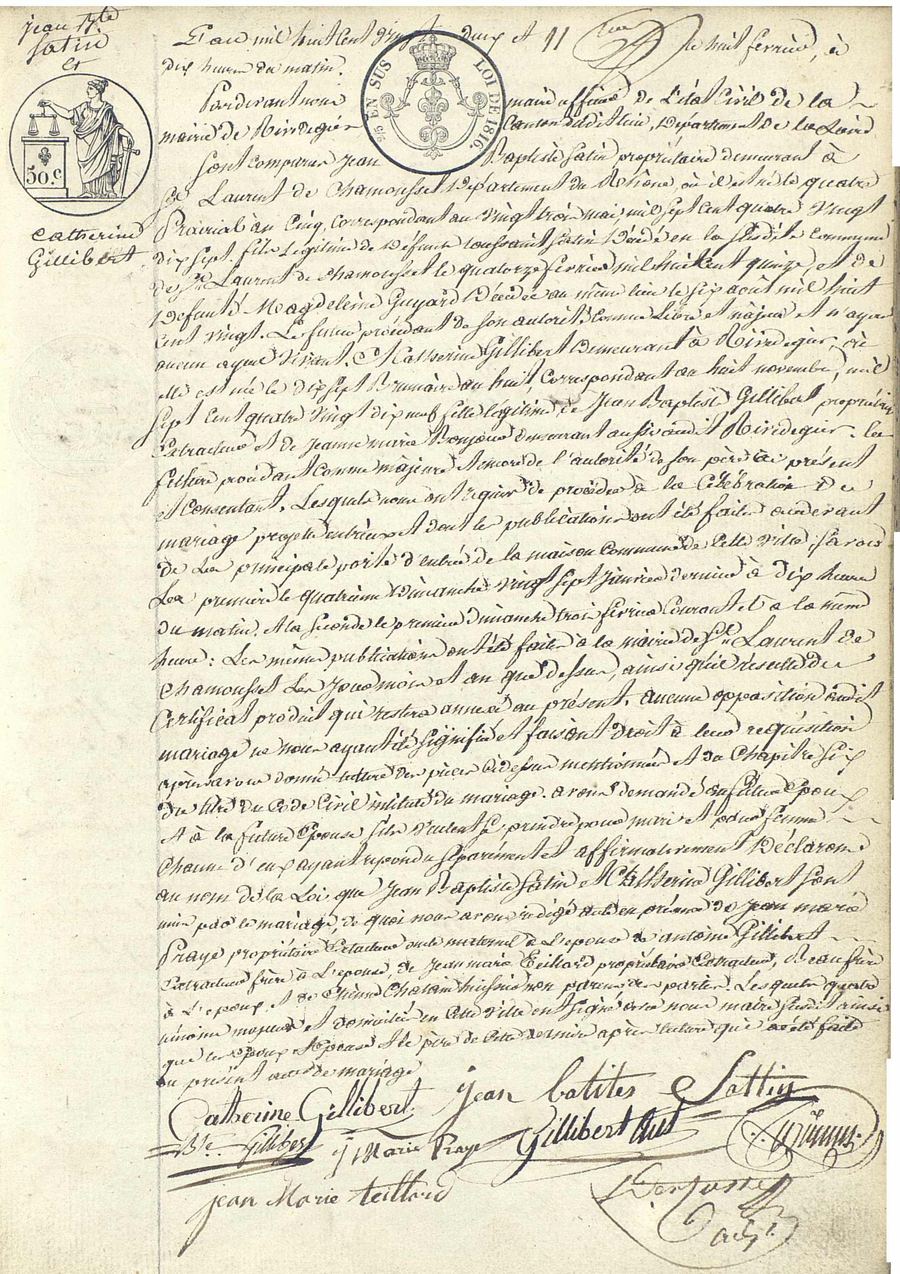 jean Bte
Satin
et
50.c
Catherine
Gillibert
25 EN SUS LOI DE 1816.
L'an mil huit cent vingt deux et le huit fevrier, à
dix heures du matin.
Pardevant nous maire officier de l'état Civil de la
mairie de Rivedegier Canton dudit lieu, Département de la Loire
Sont comparus Jean Baptiste Satin propriétaire demeurant à
St Laurent de Chamousset Département du Rhône, où il est né le quatre
Prairial an Cinq, correspondant au vingt trois mai mil sept cent quatre vingt
dix sept, fils légitime de Défunt toussaint Satin Décédé en la susdite Commune
de St Laurent de Chamousset le quatorze fevrier mil huit cent quinze, et de
Défunte Magdeleine Guyard Décédée au même lieu le six août mil huit
cent vingt. Le futur procédant de son autorité comme libre et majeur et n'ayant
aucun ayeul vivant. Et Catherine Gillibert Demeurant à Rivedegier, où
elle est née le dix sept Brumaire an huit, correspondant au huit novembre, mil
sept cent quatre vingt dix neuf fille légitime de Jean Baptiste Gillibert propriétaire
Extracteur et de Jeanne marie Bonjour demeurant aussi audit Rivedegier. la
future procédant comme majeure et encore de l'autorité de son père ici présent
et Consentant. Lesquels nous ont requis de procéder à la Célébration de
mariage projeté entr'eux et dont les publications ont été faites audevant
de la principale porte d'entrée de la maison Commune de Cette ville Savoir
La première le quatrième dimanche vingt sept janvier dernier à dix heures
du matin, et la seconde le premier dimanche trois fevrier Courant et à la même
heure: Les mêmes publications ont été faites à la mairie de St Laurent de
Chamousset Les jour mois et an que dessus, ainsi qu'il resulte du
Certificat produit qui restera annexé au présent. aucune opposition audit
mariage ne nous ayant été signifiée et faisant droit à leur requisition
après avoir donné lecture des pièces cidessus mentionnées et du Chapitre six
du titre du Code Civil intitulé du mariage. avons demandé au futur Epoux
et à la future Epouse s'ils veulent se prendre pour mari et pour femme
Chacun d'eux ayant repondu séparément et affirmativement Déclarons
au nom de la Loi que Jean Baptiste Satin et Catherine Gillibert sont
unis par le mariage, de quoi nous avons rédigé acte en présence de Jean marie
Praye propriétaire Extracteur oncle maternel à L'epouse de antoine Gillibert
Extracteur frère à L'epouse, de Jean marie Teillard propriétaire Extracteur, Beaufrère
à L'epoux et de Etienne huissier non parent des parties. Lesquels quatre
témoins majeurs et domiciliés en Cette ville ont signé avec nous maire susdit ainsi
que les Epoux et Epouse et le père de Cette dernière après lecture qui a été faite
du présent acte de mariage
Catherine Gillibert jean batites Sattin
Bte Gillibert J Marie Praye Gillibert
jean Marie teillard